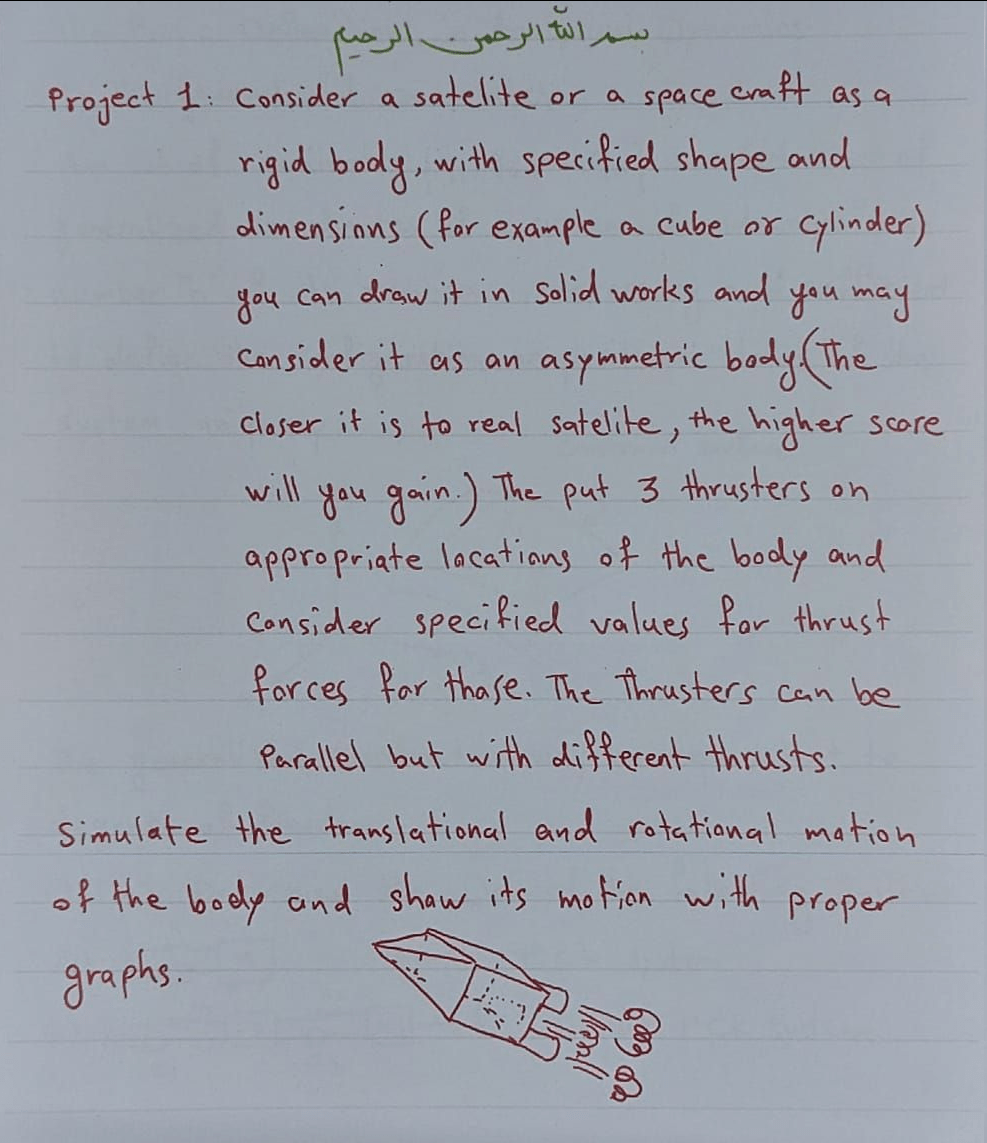 بسم الله الرحمن الرحيم
Project 1: Consider a satelite or a space craft as a
rigid body, with specified shape and
dimensions (for example a cube or cylinder)
you can draw it in Solid works and you may
Consider it as an asymmetric body.(The
closer it is to real satelite, the higher score
will you gain.) The put 3 thrusters on
appropriate locations of the body and
Consider specified values for thrust
forces for those. The Thrusters can be
Parallel but with different thrusts.
Simulate the translational and rotational motion
of the body and show its motion with proper
graphs.